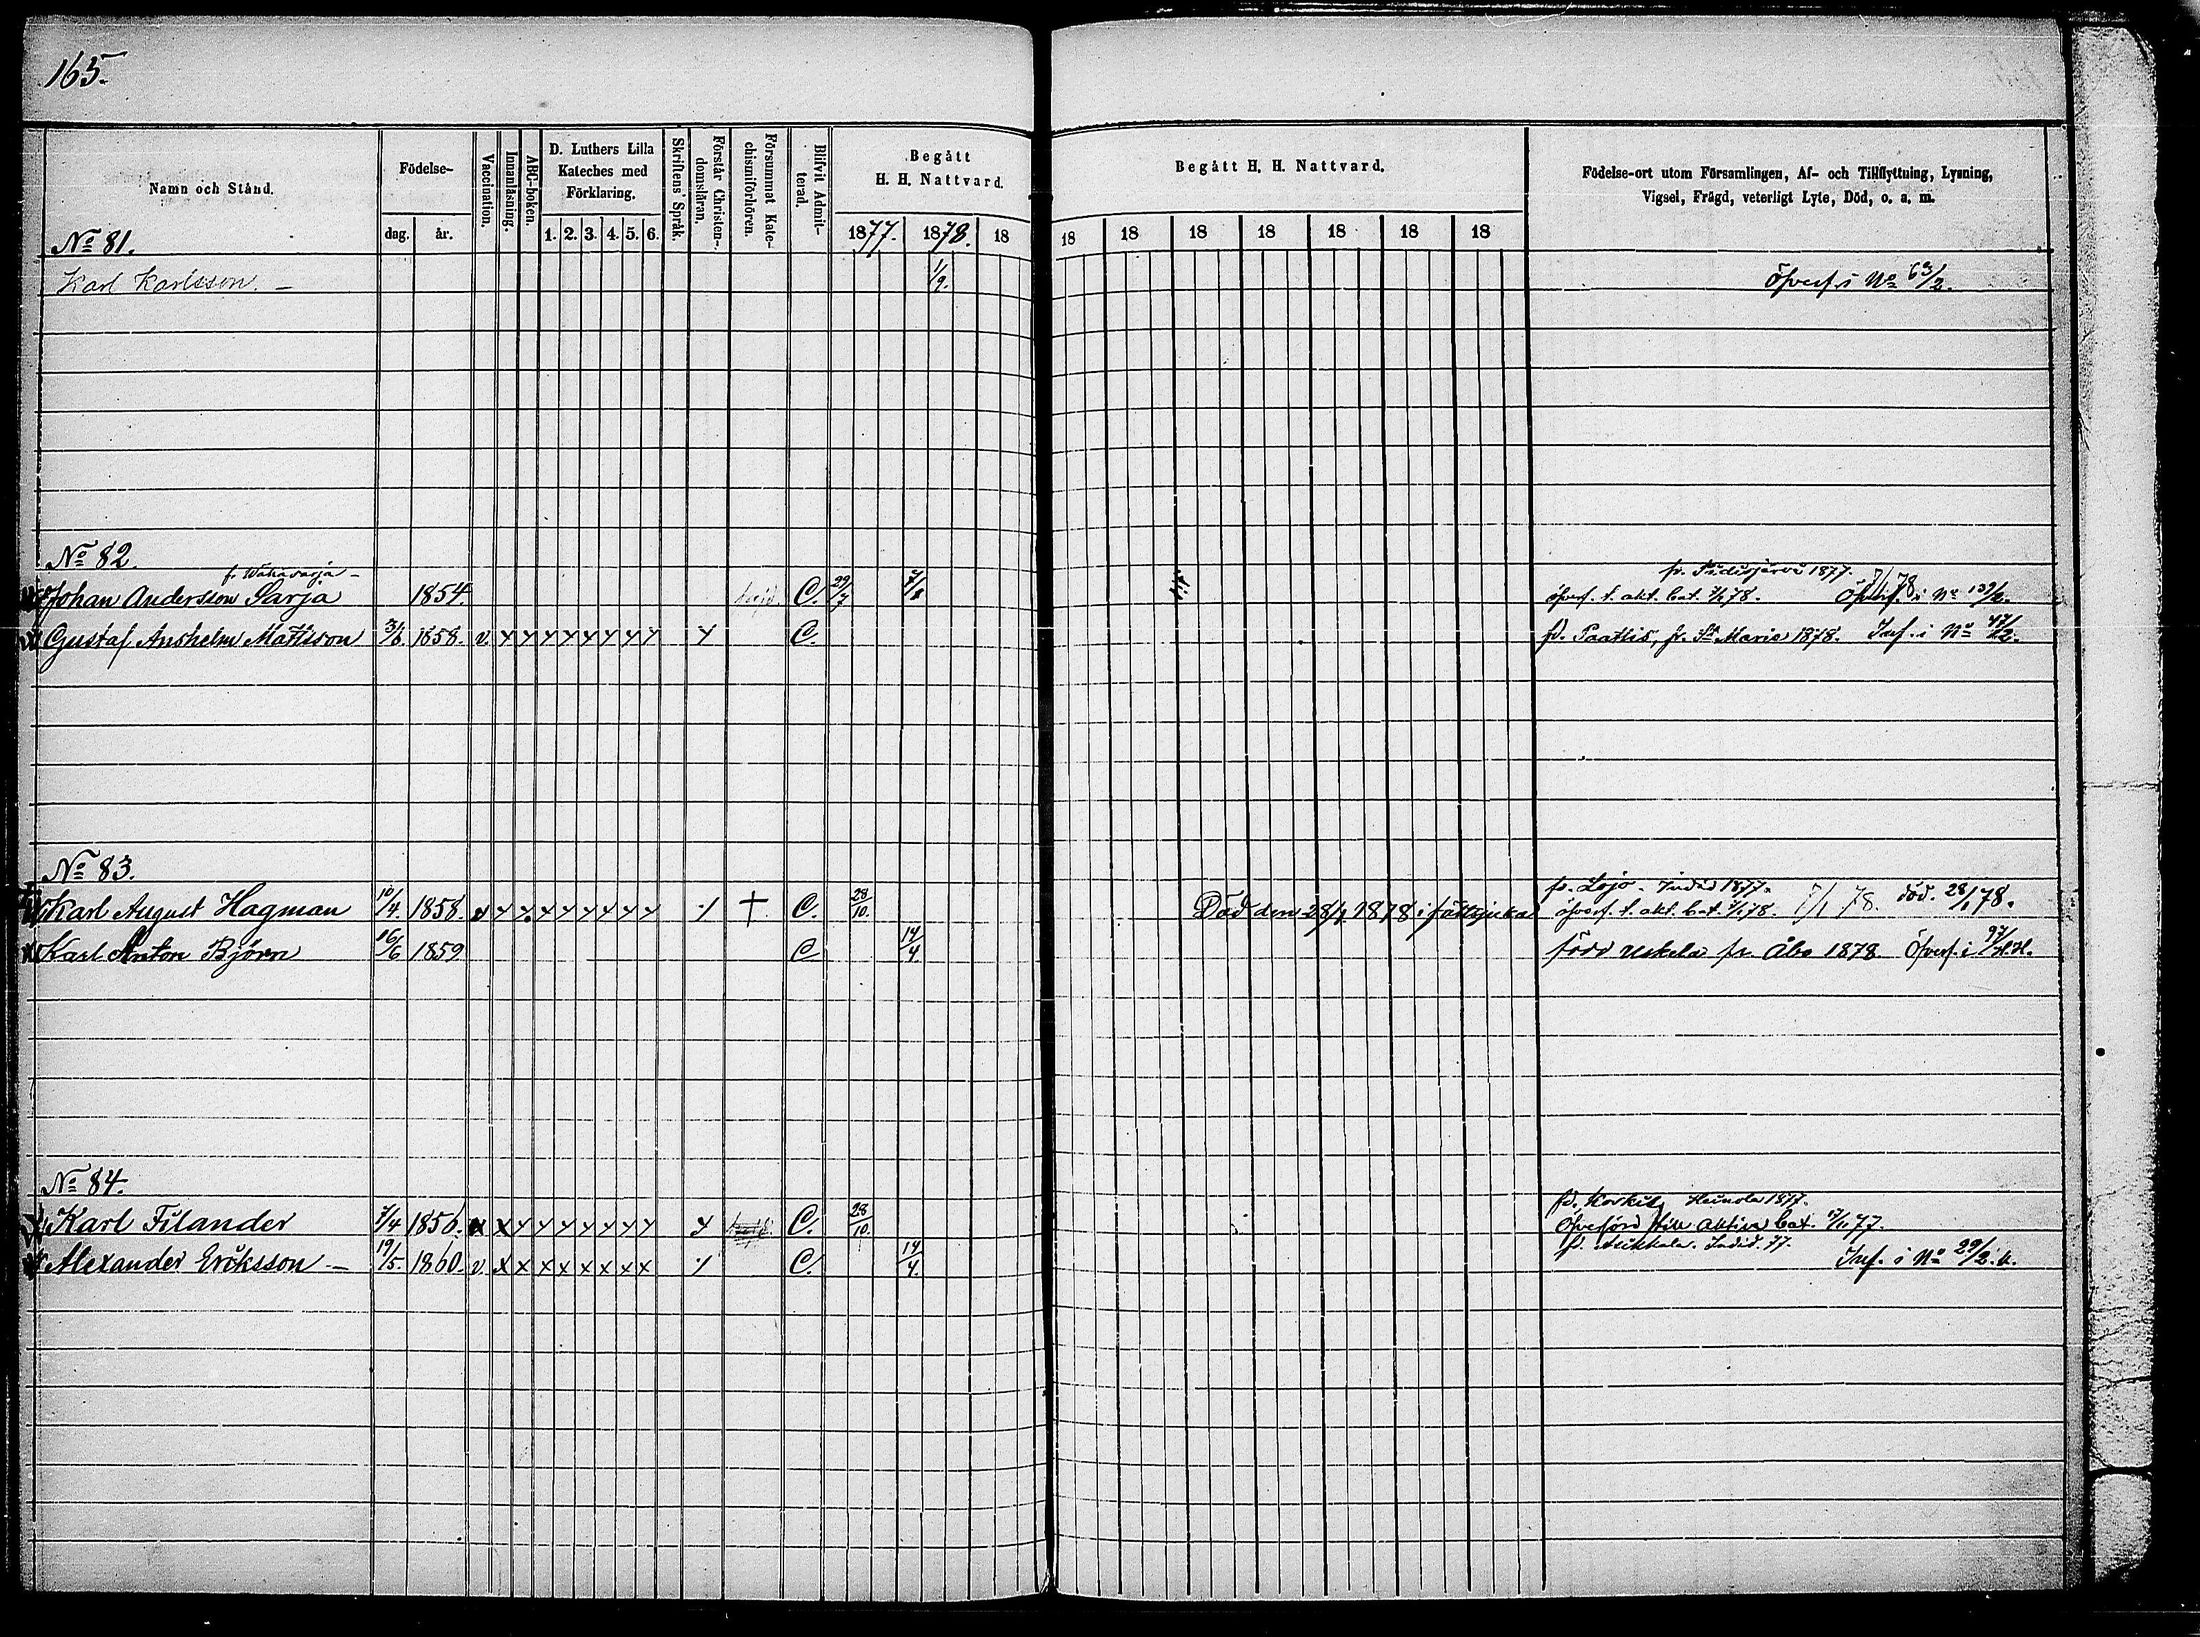 165.
Namn och Stånd.
Födelse-
dag. år.
Vaccination.
Innanläsning.
ABC-boken.
D. Luthers Lilla
Kateches med
Förklaring.
1. 2. 3. 4. 5. 6.
Skriftens Språk.
Förstår Christen-
domsläran.
Försummat Kate-
chismiförhören.
Blifvit Admit-
terad.
Begått
H. H. Nattvard.
1877. 1878. 18
Begått H. H. Nattvard.
18 18 18 18 18 18 18
Födelse-ort utom Församlingen, Af- och Tillflyttning, Lysning,
Vigsel, Frägd, veterligt Lyte, Död, o. a. m.
No 81.
Karl Karlsson. — 1/9. Öfverf. i No 63/2.
No 82.
Johan Andersson Sarja 1854. C. 29/7 7/8 fr. Pudisjärvi 1877. öfverf. t. akt. bat. 7/1 78. 7/1 78 Öfverf. i No 139/2.
Gustaf Anshelm Mattsson 3/6. 1858. v. x x x x x x x x x C. fd. Paattis, fr. St Marie 1878. Inf. i No 47/2.
No 83.
Karl August Hagman 10/4. 1858. x x x x x x x x x † C. 28/10. Död den 28/1 1878 i fältsjuka fr. Lojo. Indid 1877. öfverf. t. akt. bat. 7/1 78. 7/1 78. död. 28/1 78.
Karl Anton Björn 16/6 1859 C 14/4 född Uskela fr. Åbo 1878. Öfverf. i 97/H.H.
No 84.
Karl Filander 7/4 1856. x x x x x x x x x C. 28/10. fd. Korkis, Heinola 1877.
Öfverförd till aktiva bat. 17/11 77.
Alexander Eriksson — 19/5. 1860. v. x x x x x x x x C. 14/4. fd. Asikkala. Indid. 77. Inf. i No 29/2.k.